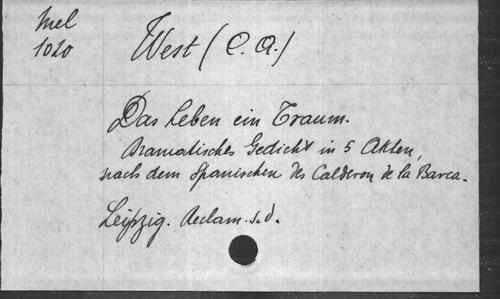 Mel
1020
West (C. A.)
Das Leben ein Traum.
Dramatisches Gedicht in 5 Akten,
nach dem Spanischen des Calderon de la Barca.
Leipzig. Reclam. s. d.